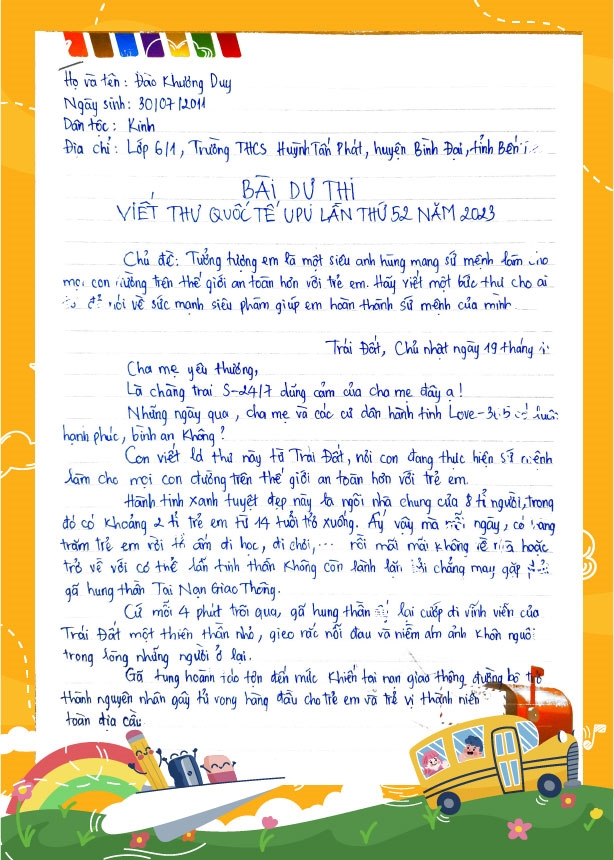 Họ và tên : Đào Khương Duy
Ngày sinh : 30/07/2011
Dân tộc : Kinh
Địa chỉ : Lớp 6/1, Trường THCS Huỳnh Tấn Phát, huyện Bình Đại, tỉnh Bến
BÀI DỰ THI
VIẾT THƯ QUỐC TẾ UPU LẦN THỨ 52 NĂM 2023
Chủ đề: Tưởng tượng em là một siêu anh hùng mang sứ mệnh làm cho
mọi con đường trên thế giới an toàn hơn với trẻ em. Hãy viết một bức thư cho ai
đó để nói về sức mạnh siêu phàm giúp em hoàn thành sứ mệnh của mình
Trái Đất, Chủ nhật ngày 19 tháng
Cha mẹ yêu thương,
Là chàng trai S-24/7 dũng cảm của cha mẹ đây ạ!
Những ngày qua, cha mẹ và các cư dân hành tinh Love-365 có luôn
hạnh phúc, bình an không?
Con viết lá thư này từ Trái Đất, nơi con đang thực hiện sứ mệnh
làm cho mọi con đường trên thế giới an toàn hơn với trẻ em.
Hành tinh xanh tuyệt đẹp này là ngôi nhà chung của 8 tỉ người, trong
đó có khoảng 2 tỉ trẻ em từ 14 tuổi trở xuống. Ấy vậy mà mỗi ngày, có hàng
trăm trẻ em rời tổ ấm đi học, đi chơi,... rồi mãi mãi không về nhà hoặc
trở về với cơ thể lẫn tinh thần không còn lành lặn bởi chẳng may gặp phải
gã hung thần Tai Nạn Giao Thông.
Cứ mỗi 4 phút trôi qua, gã hung thần ấy lại cướp đi vĩnh viễn của
Trái Đất một thiên thần nhỏ, gieo rắc nỗi đau và niềm ám ảnh khôn nguôi
trong lòng những người ở lại.
Gã tung hoành to lớn đến mức khiến tai nạn giao thông đường bộ trở
thành nguyên nhân gây tử vong hàng đầu cho trẻ em và trẻ vị thành niên
toàn địa cầu